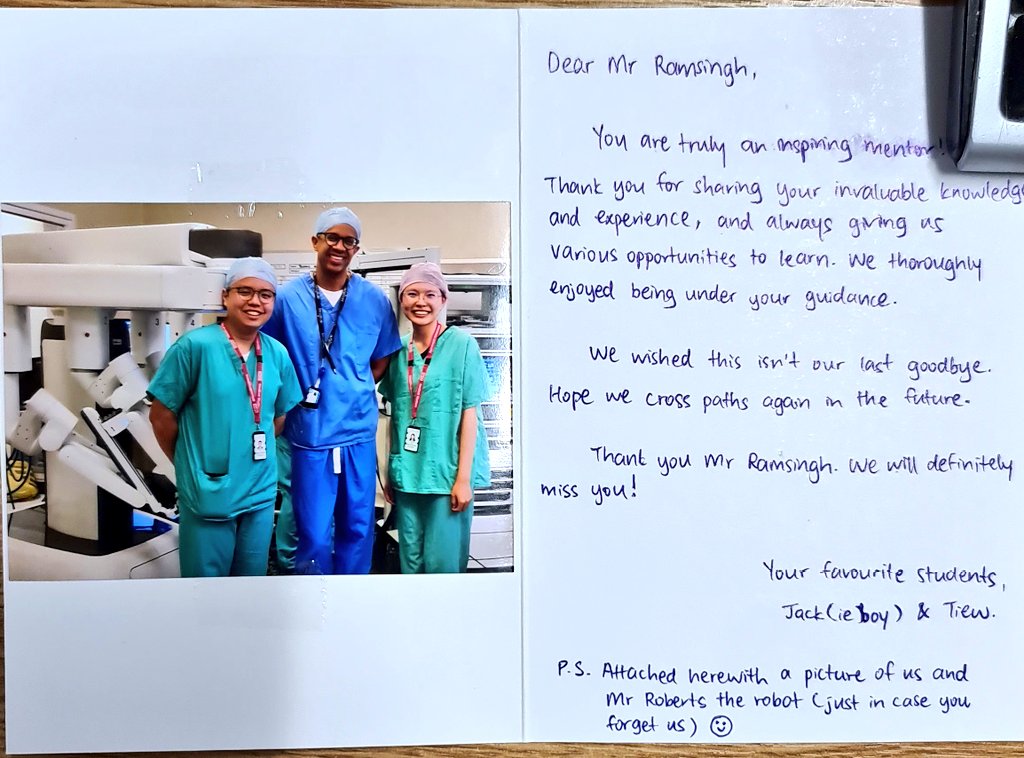 3 4
Dear Mr Ramsingh,
You are truly an inspiring mentor!
Thank you for sharing your invaluable knowledge
and experience, and always giving us
various opportunities to learn. We thoroughly
enjoyed being under your guidance.
We wished this isn't our last goodbye.
Hope we cross paths again in the future.
Thank you Mr Ramsingh. We will definitely
miss you!
Your favourite students,
Jack(ie boy) & Tiew.
P.S. Attached herewith a picture of us and
Mr Roberts the robot (just in case you
forget us) ☺